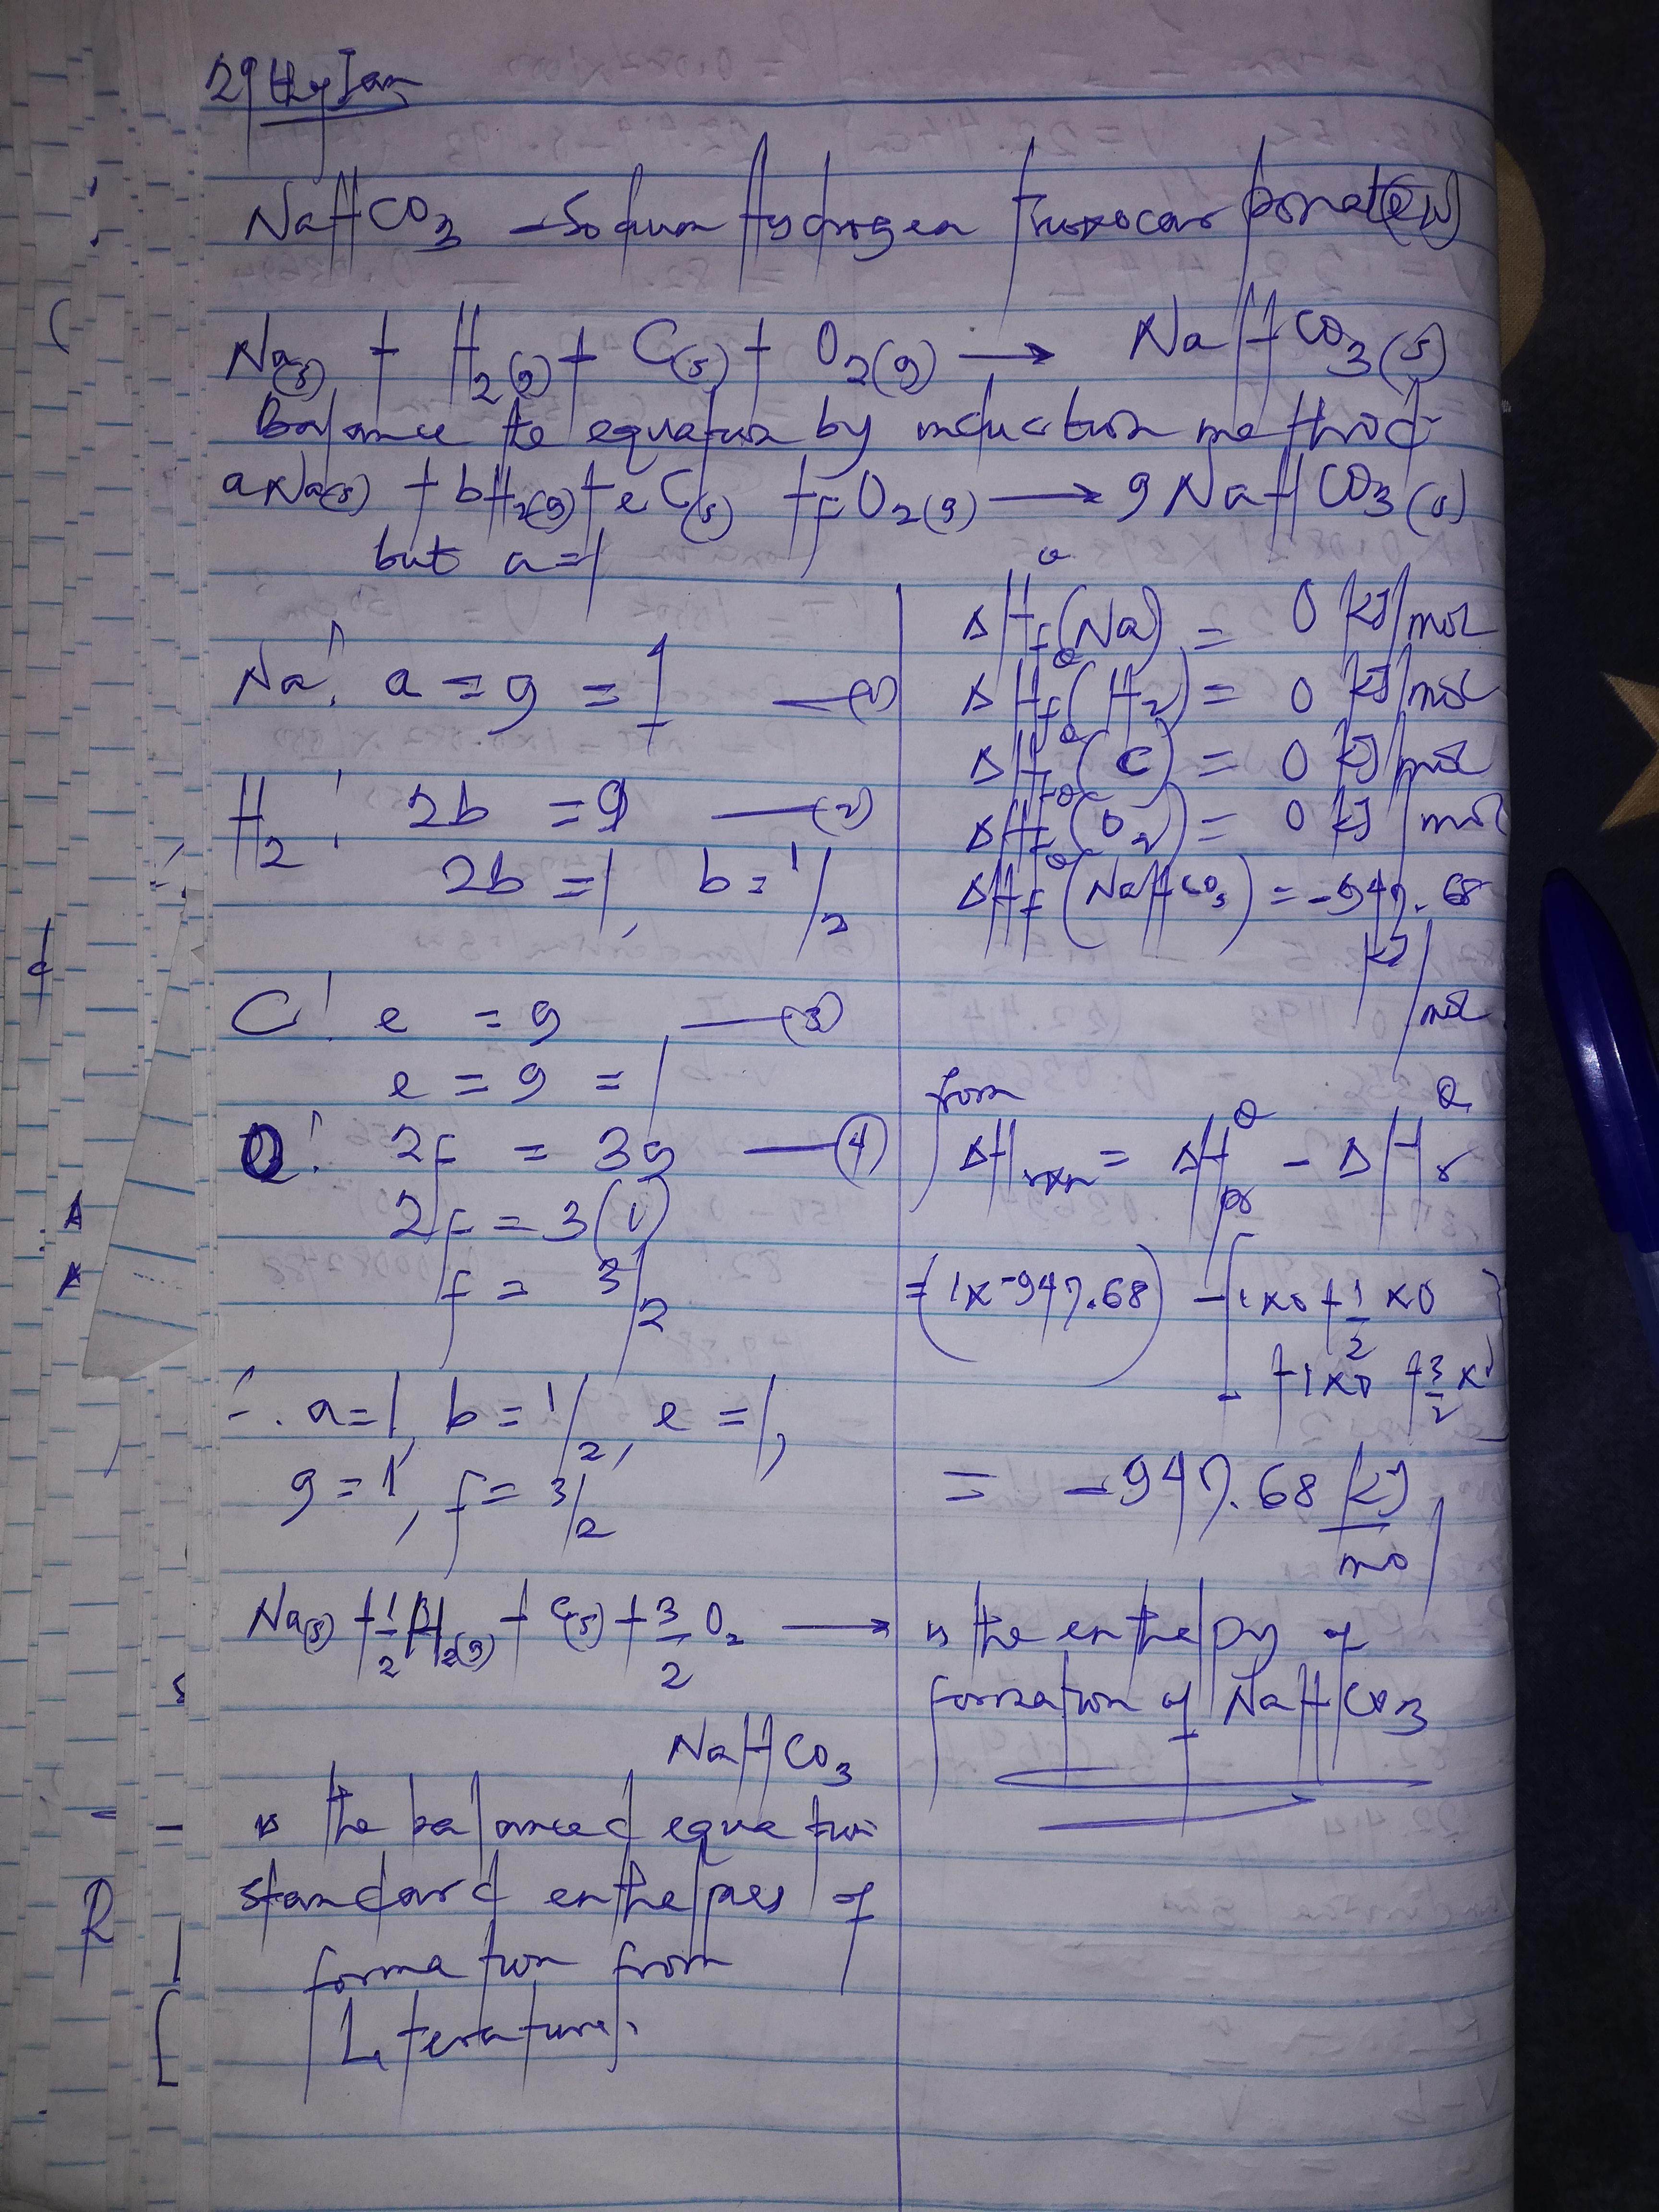 NaHCO3 – Sodium Hydrogen trioxocarbonate(IV)
Na(s) + H2(g) + C(s) + O2(g) → NaHCO3(s)
Balance the equation by induction method
aNa(s) + bH2(g) + eC(s) + fO2(g) → gNaHCO3(s)
but a=1
Na: a = g = 1 —(1)
H2: 2b = g —(2)
2b = 1, b = 1/2
C: e = g —(3)
e = g = 1
O: 2f = 3g —(4)
2f = 3(1)
f = 3/2
∴ a=1, b = 1/2, e = 1,
g = 1, f = 3/2
Na(s) + 1/2 H2(g) + C(s) + 3/2 O2 →
NaHCO3
is the balanced equation
standard enthalpies of
formation from
Literature,
ΔHf°(Na) = 0 kJ/mol
ΔHf°(H2) = 0 kJ/mol
ΔHf°(C) = 0 kJ/mol
ΔHf°(O2) = 0 kJ/mol
ΔHf°(NaHCO3) = -947.68
kJ/mol
from
ΔHrxn = ΔH°pr - ΔH°r
= (1x-947.68) - [1x0 + 1/2 x0
+1x0 + 3/2 x0]
= -947.68 kJ/mol
is the enthalpy of
formation of NaHCO3